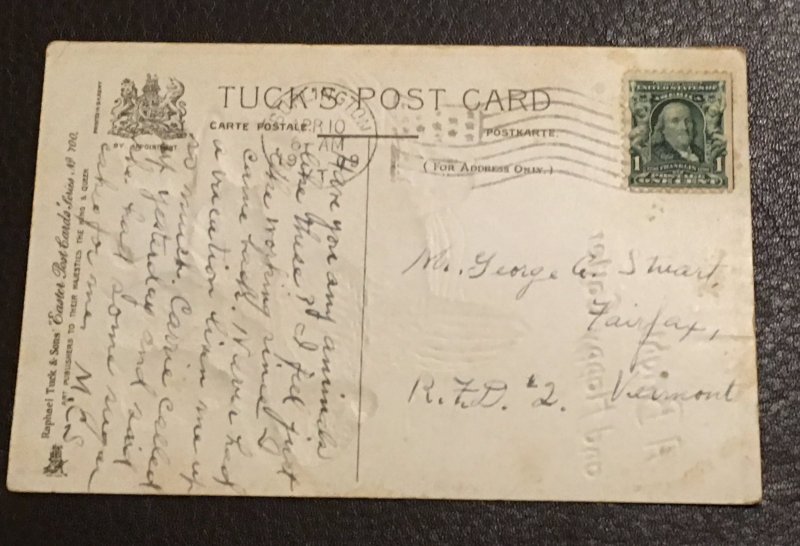 TUCK'S POST CARD
CARTE POSTALE.
POSTKARTE.
(FOR ADDRESS ONLY.)
BY APPOINTMENT.
Raphael Tuck & Sons' "Easter Post Cards" Series, No. 700.
ART PUBLISHERS TO THEIR MAJESTIES THE KING & QUEEN
APR 10
AM
UNITED STATES OF
AMERICA
1 1
FRANKLIN
ONE CENT
Mr. George Stuart,
Fairfax,
R.F.D. #2. Vermont
Have you any
like these? I feel just
like working since I
came back. Never had
a vacation liven me up
so much. Carrie called
up yesterday and said
she had some sugar
cake for me. M.